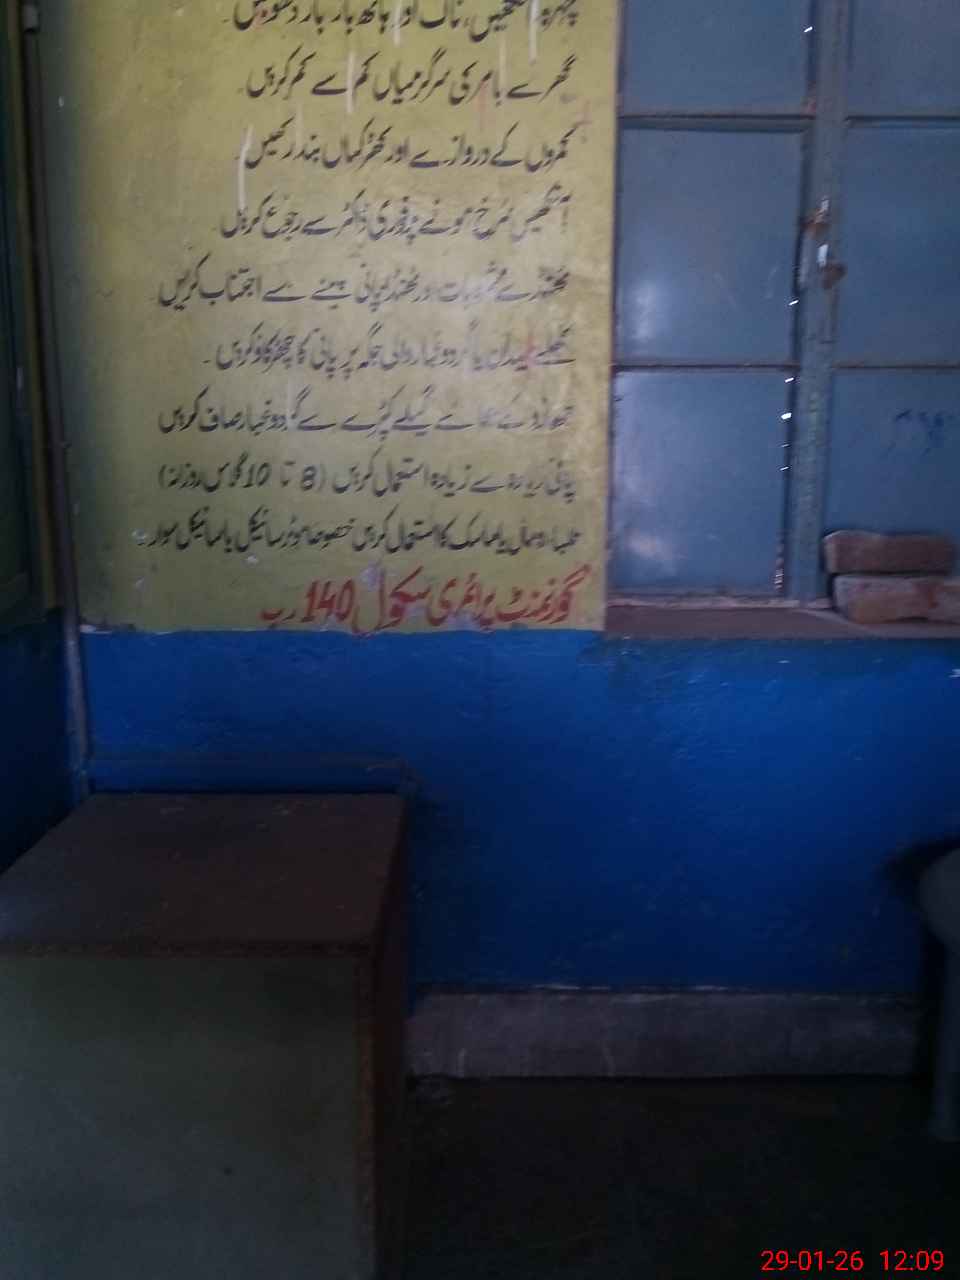 چہرہ، آنکھیں، ناک اور ہاتھ بار بار دھوئیں۔
گھر سے باہر کی سرگرمیاں کم سے کم کریں۔
کمروں کے دروازے اور کھڑکیاں بند رکھیں۔
آنکھیں سُرخ ہونے پر فوری ڈاکٹر سے رجوع کریں۔
ٹھنڈے مشروبات اور ٹھنڈا پانی پینے سے اجتناب کریں
کھلے میدان یا گرد و غبار والی جگہ پر پانی کا چھڑکاؤ کریں۔
جھاڑو کے بجائے گیلے کپڑے سے گرد و غبار صاف کریں
پانی زیادہ سے زیادہ استعمال کریں (8 تا 10 گلاس روزانہ)
طلباء رومال یا ماسک کا استعمال کریں خصوصاً موٹر سائیکل یا سائیکل سوار۔
گورنمنٹ پرائمری سکول 140 رب
29-01-26 12:09